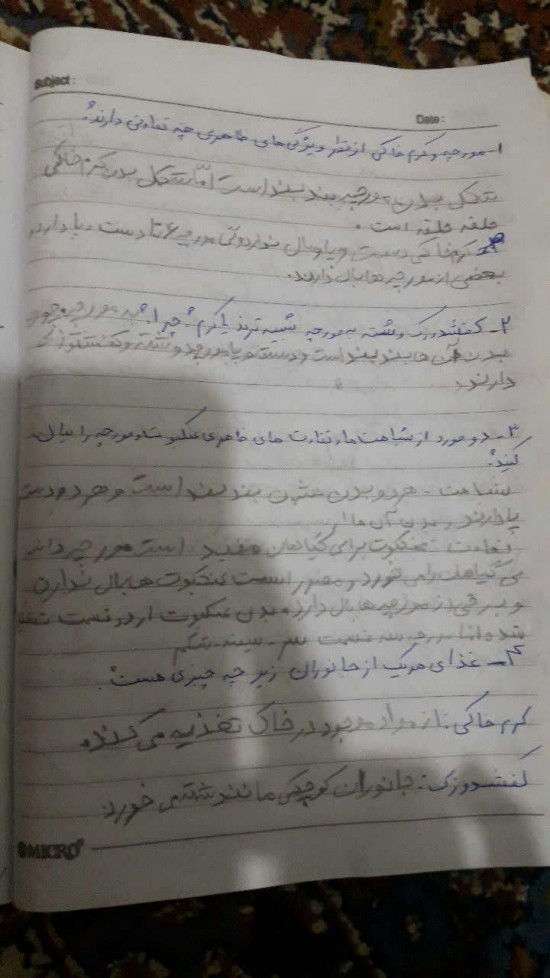 Subject :
Date :
۱- مورچه و کرم خاکی از نظر ویژگی های ظاهری چه تفاوتی دارند؟
شکل بدن مورچه بند بند است اما شکل بدن کرم خاکی
حلقه حلقه است .
کرم خاکی دست و پا و بال ندارد ولی مورچه ۶ تا دست و پا دارد
بعضی از مورچه ها بال دارند.
۲- کفشدوزک و شته به مورچه شبیه ترند یا کرم؟ چرا؟ به مورچه چون
بدن آن ها بند بند است و دست و پا
دارند.
۳- دو مورد از شباهت ها و تفاوت های ظاهری عنکبوت و مورچه را بیان
کنید؟
شباهت - هر دو بدن شون بند بند است و هر دو دست
پا دارند و بدن آن ها
تفاوت عنکبوت برای گیاهان مفید است مورچه
گیاهان را می خورد و مضر است عنکبوت ها بال ندارن
و برخی از مورچه ها بال دارند بدن عنکبوت از دو قسمت
شده اما مورچه سه قسمت سر - سینه - شکم
۴- غذای هریک از جانوران زیر چه چیزی هست؟
کرم خاکی : از مواد موجود در خاک تغذیه می کند.
کفشدوزک : جانوران کوچکی مانند شته می خورد.
MICRO